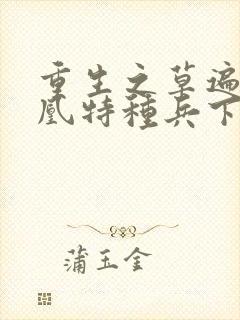 重生之草遍
凰特種兵下
蒲玉金